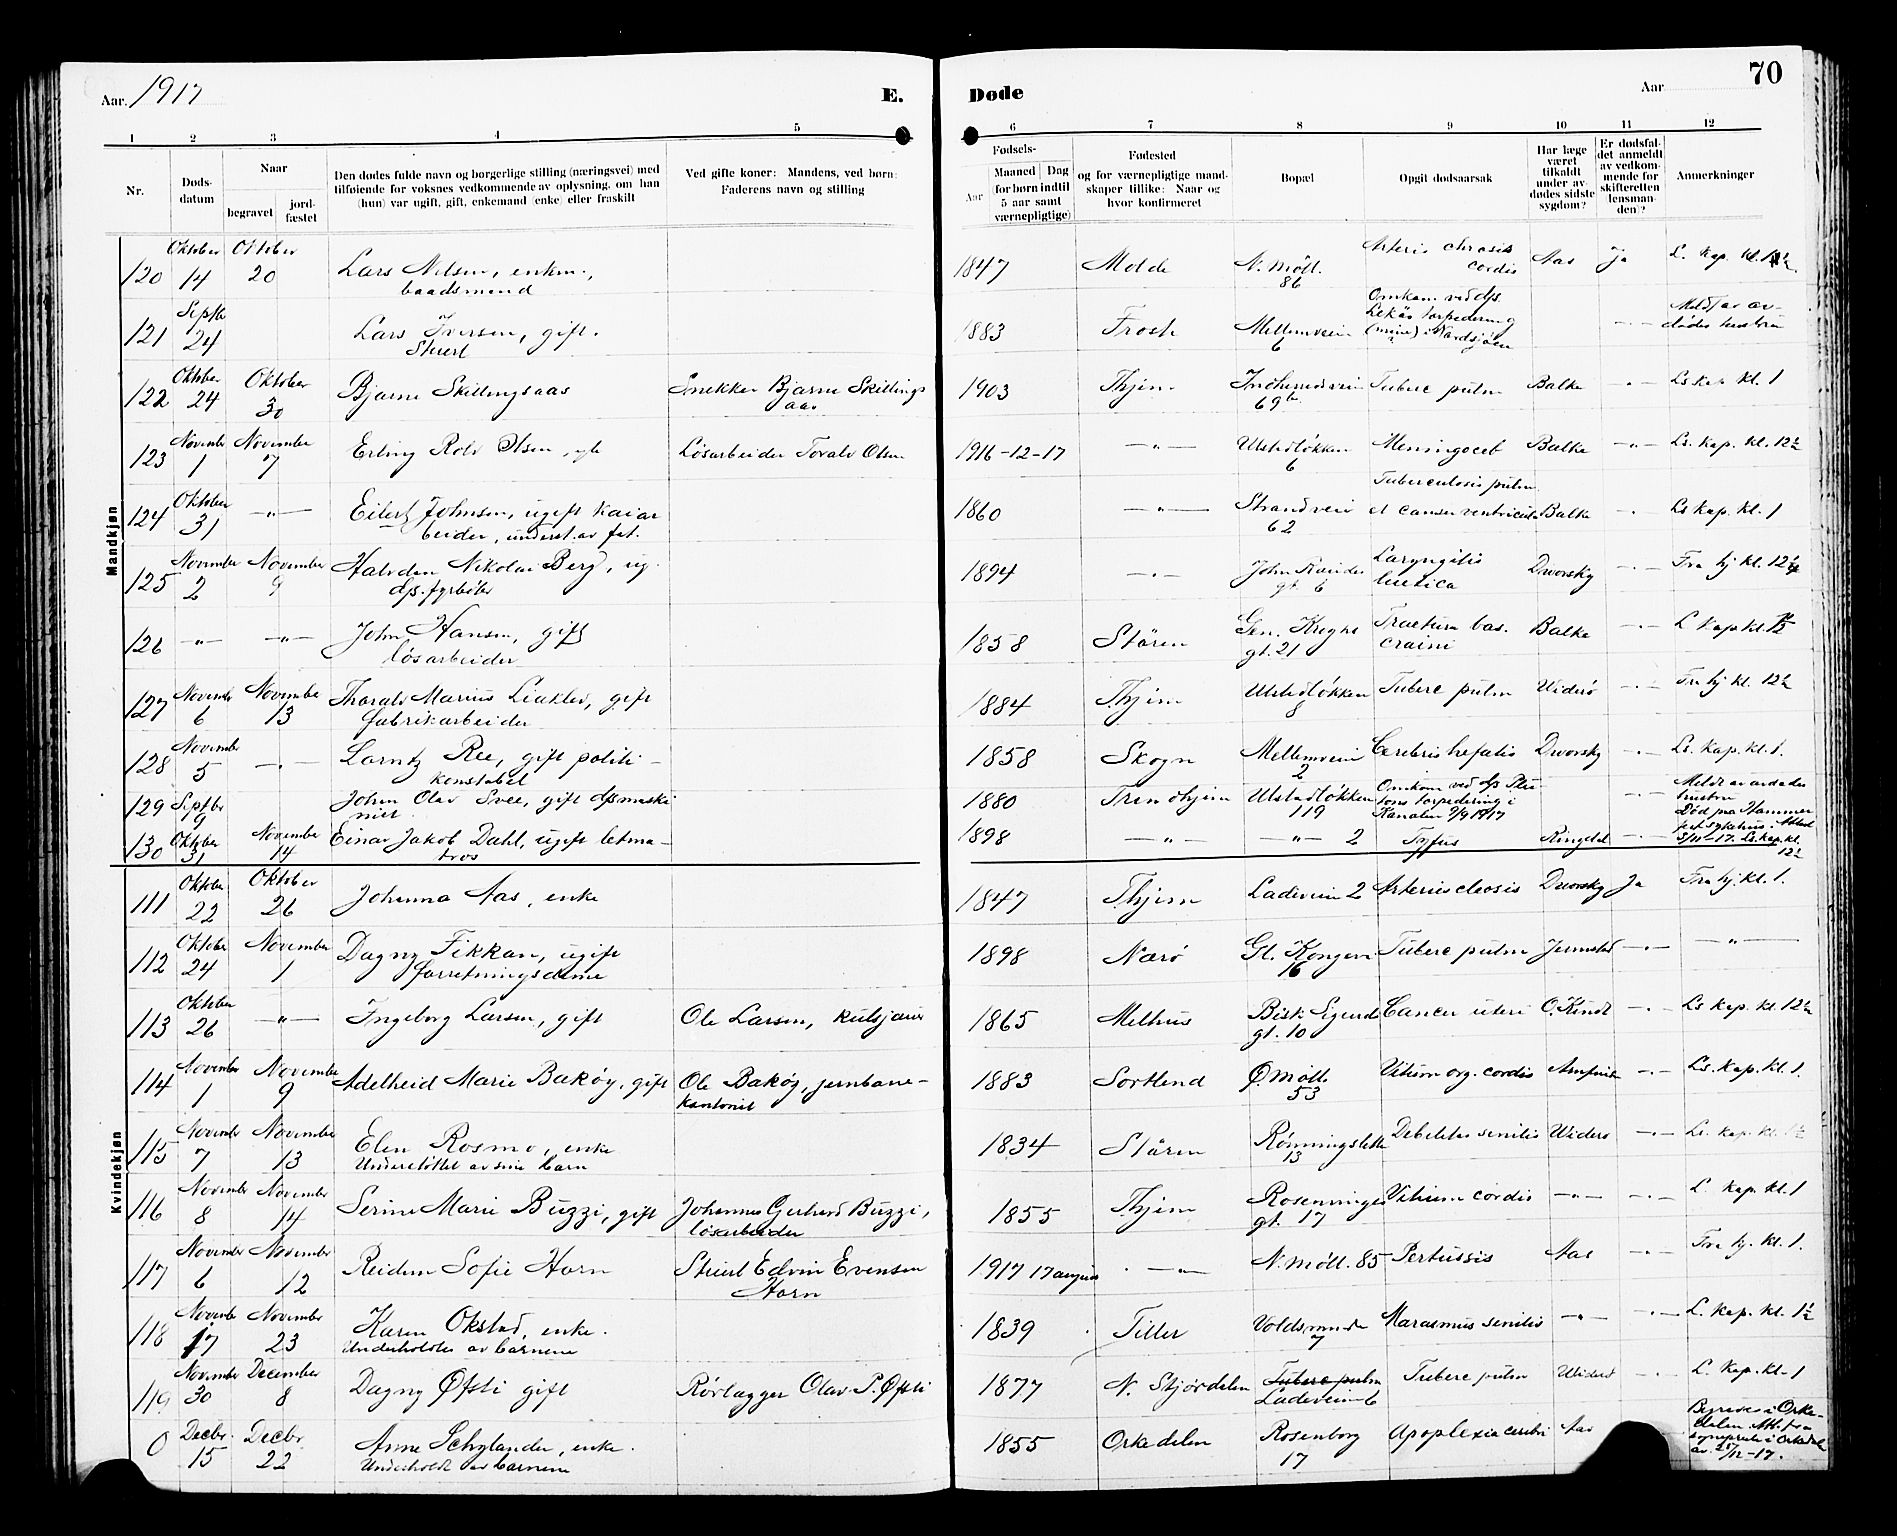 Aar. 1917
E.
Døde
Aar
70
1 2 3 4 5 6 7 8 9 10 11 12
Nr.
Døds-
datum
Naar
begravet
jord-
fæstet
Den dødes fulde navn og borgerlige stilling (næringsvei) med
tilføiende for voksnes vedkommende av oplysning, om han
(hun) var ugift, gift, enkemand (enke) eller fraskilt
Ved gifte koner: Mandens, ved børn:
Faderens navn og stilling
Fødsels-
Aar
Maaned Dag
for børn indtil
5 aar samt
værnepligtige)
Fødested
og for værnepligtige mand-
skaper tillike: Naar og
hvor konfirmeret
Bopæl
Opgit dødsaarsak
Har læge
været
tilkaldt
under av-
dødes sidste
sygdom?
Er dødsfal-
det anmeldt
av vedkom-
mende for
skifteretten
(lensman-
den)?
Anmerkninger
Mandkjøn
120 Oktober 14 Oktober 20 Lars Nilsen, enkm., baadsmand 1847 Molde N. Møll. 86 cordis Aas Ja L. Kap. kl.
121 Septbr 24 Lars Iversen, gift. Stuert 1883 Frosta Mellemveien 6 Omkom. ved d/s torpedering -"- Meldt av av-
dødes hustru
122 Oktober 24 Oktober 30 Bjarne Skillingsaas Snekker Bjarne Skillings
aas 1903 Thjem Inherredsveien 69b Tuberc pulm Balke -"- Ls kap kl. 1
123 November 1 November 7 Erling Rolv Olsen, Løsarbeider Toralv Olsen 1916-12-17 -"- Ulstadløkken 6 Balke -"- Ls. kap. kl. 12½
124 Oktober 31 -"- Eilert Johnsen, ugift kaiar
beider, underst. av fat. 1860 -"- Strandveien 62 Tuberculosis pulm
et cancer ventriculi Balke -"- Ls kap. kl. 1
125 November 2 November 9 Halvdan Nikolai Berg, ug.
d/s. fyrbøter 1894 -"- John 6 Laryngitis
luetica Dworsky -"- Fra hj kl. 12½
126 -"- -"- John Hansen, gift
løsarbeider 1858 Støren Gen. Kreghs
gt. 21 Fractura bas.
craini Balke -"- L kap kl.
127 November 6 November 13 Thoralv Marius Liaklev, gift
fabrikarbeider 1884 Thjem Ulstadløkken 8 Tuberc pulm Widerø -"- Fra hj kl. 12½
128 November 5 -"- Lorntz Ree, gift politi-
konstabel 1858 Skogn Mellemveien 2 Dworsky -"- Ls. kap. kl. 1.
129 Septbr 9 Johan Olav Svee, gift d/s maski
nist 1880 Trondhjem Ulstadløkken 119 Omkom ved d/s
tons torpedering i
Kanalen 9/9 1917 -"- Meldt av avdødes
hustru
130 Oktober 31 November 14 Einar Jakob Dahl, ugift letma-
tros 1898 -"- -"- 2 Tyfus Ringdal -"- Død paa Hammer
fest sykehus. Attest
-17. Ls. kap. kl.
12½
Kvindekjøn
111 Oktober 22 Oktober 26 Johanna Aas, enke 1847 Thjem Ladeveien 2 Dworsky Ja Fra hj. kl. 1.
112 Oktober 24 November 1 Dagny Fikkan, ugift
forretningsdame 1898 Nærø Gl. Kongev. 16 Tuberc pulm Jermstad -"- -"-
113 Oktober 26 -"- Ingeborg Larsen, gift Ole Larsen, 1865 Melhus Bisk. Sigurds
gt. 10 Cancer uteri O. Kindt -"- Ls Kap. kl. 12½
114 November 1 November 9 Adelheid Marie Bakøy, gift Ole Bakøy, jernbane-
kontorist 1883 Sortland Ø. Møll. 53 Vitium org. cordis -"- Ls. kap. kl. 1.
115 November 7 November 13 Elen Rosmo, enke
Understøttet av sine barn 1834 Støren Rønningsletta 13 Debilitas senilis Widerø -"- Ls. kap. kl. 1½
116 November 8 November 14 Serine Marie Buzzi, gift Johannes Gerhard Buzzi,
løsarbeider 1855 Thjem Rosenborgs
gt. 17 Vitium cordis -"- -"- L. Kap. kl. 1
117 November 6 November 12 Reidun Sofie Horn Stuert Edvin Evensen
Horn 1917 17 august -"- N. Møll. 85 Pertussis Aas -"- Fra hj. kl. 1.
118 November 17 November 23 Karen Okstad, enke.
Underholdtes av barnene 1839 Tiller Voldsminde 7 Marasmus senilis -"- -"- L. kap. kl. 1½
119 November 30 December 8 Dagny Øfsti gift Rørlægger Olav P. Øfsti 1877 N. Stjørdalen Tuberc pulm
Ladeveien 6 Tuberc pulm Widerø -"- L. kap. kl. 1
0 Decbr. 15 Decbr. 22 Anne Schylander, enke.
Underholdt av barnene 1855 Orkedalen Rosenborg 17 Apoplexia cerebri Aas Begraves i Orke-
dalen. Att. fra
sogneprest i Orkedal
av /12-17.